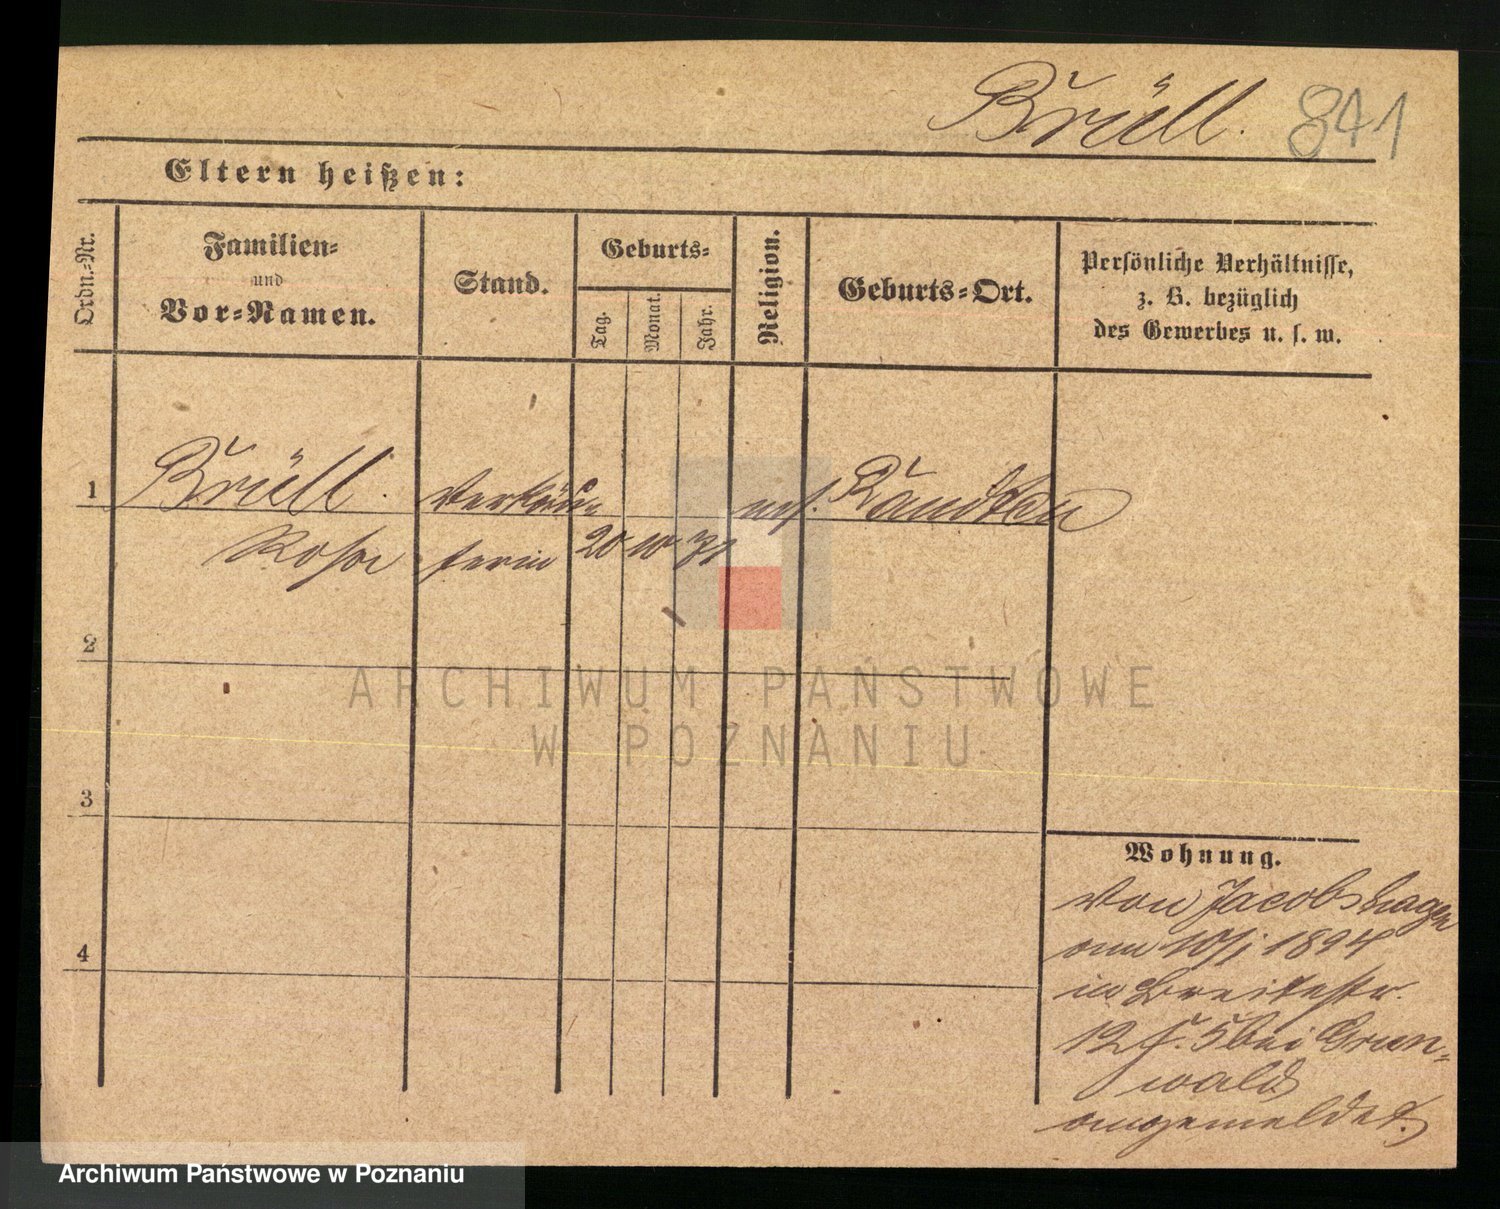 Brüll. 841
Eltern heißen:
Ordn.=Nr.
Familien=
und
Vor=Namen.
Stand.
Geburts=
Tag.
Monat.
Jahr.
Religion.
Geburts=Ort.
Persönliche Verhältnisse,
z. B. bezüglich
des Gewerbes u. s. w.
1 Brüll. Verkäu-
Rosa ferin 20 10 71
2
3
4
ARCHIWUM PAŃSTWOWE
W POZNANIU
Wohnung.
Von Jacobshagen
am 10/1 1894
in Breitestr.
12 bei Grun-
wald
angemeldet.
Archiwum Państwowe w Poznaniu